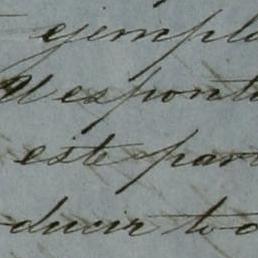 ejemplo
esponta
este par
ducir to